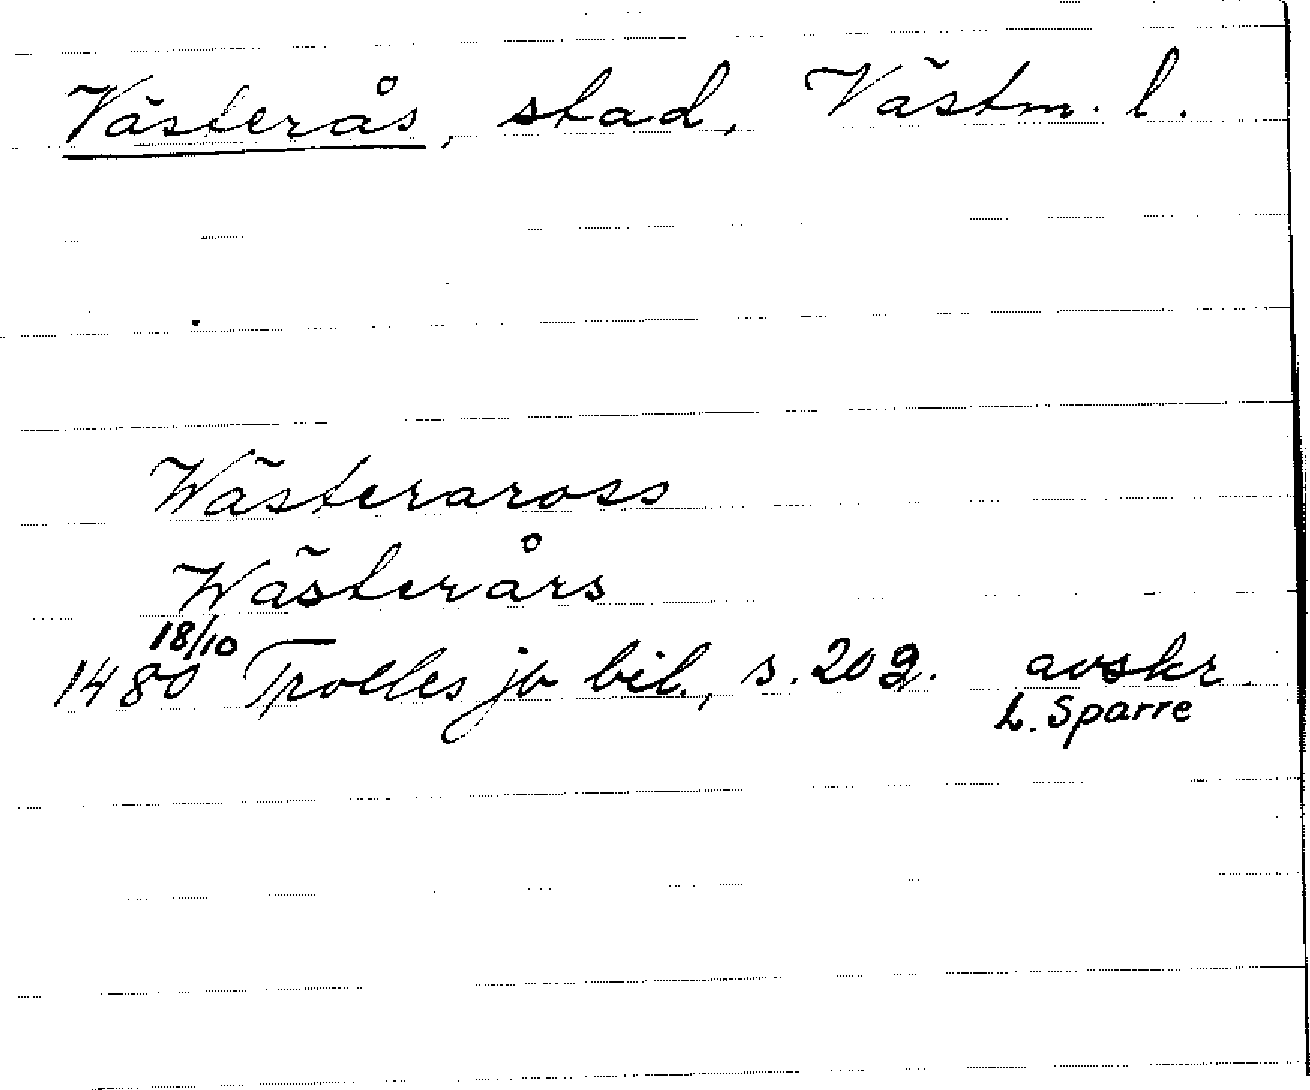 Västerås, stad, Västm. l.
Wästeraross
Wästerårs
18/10
1480 Trolles jb bil., s. 202. avskr.
L. Sparre